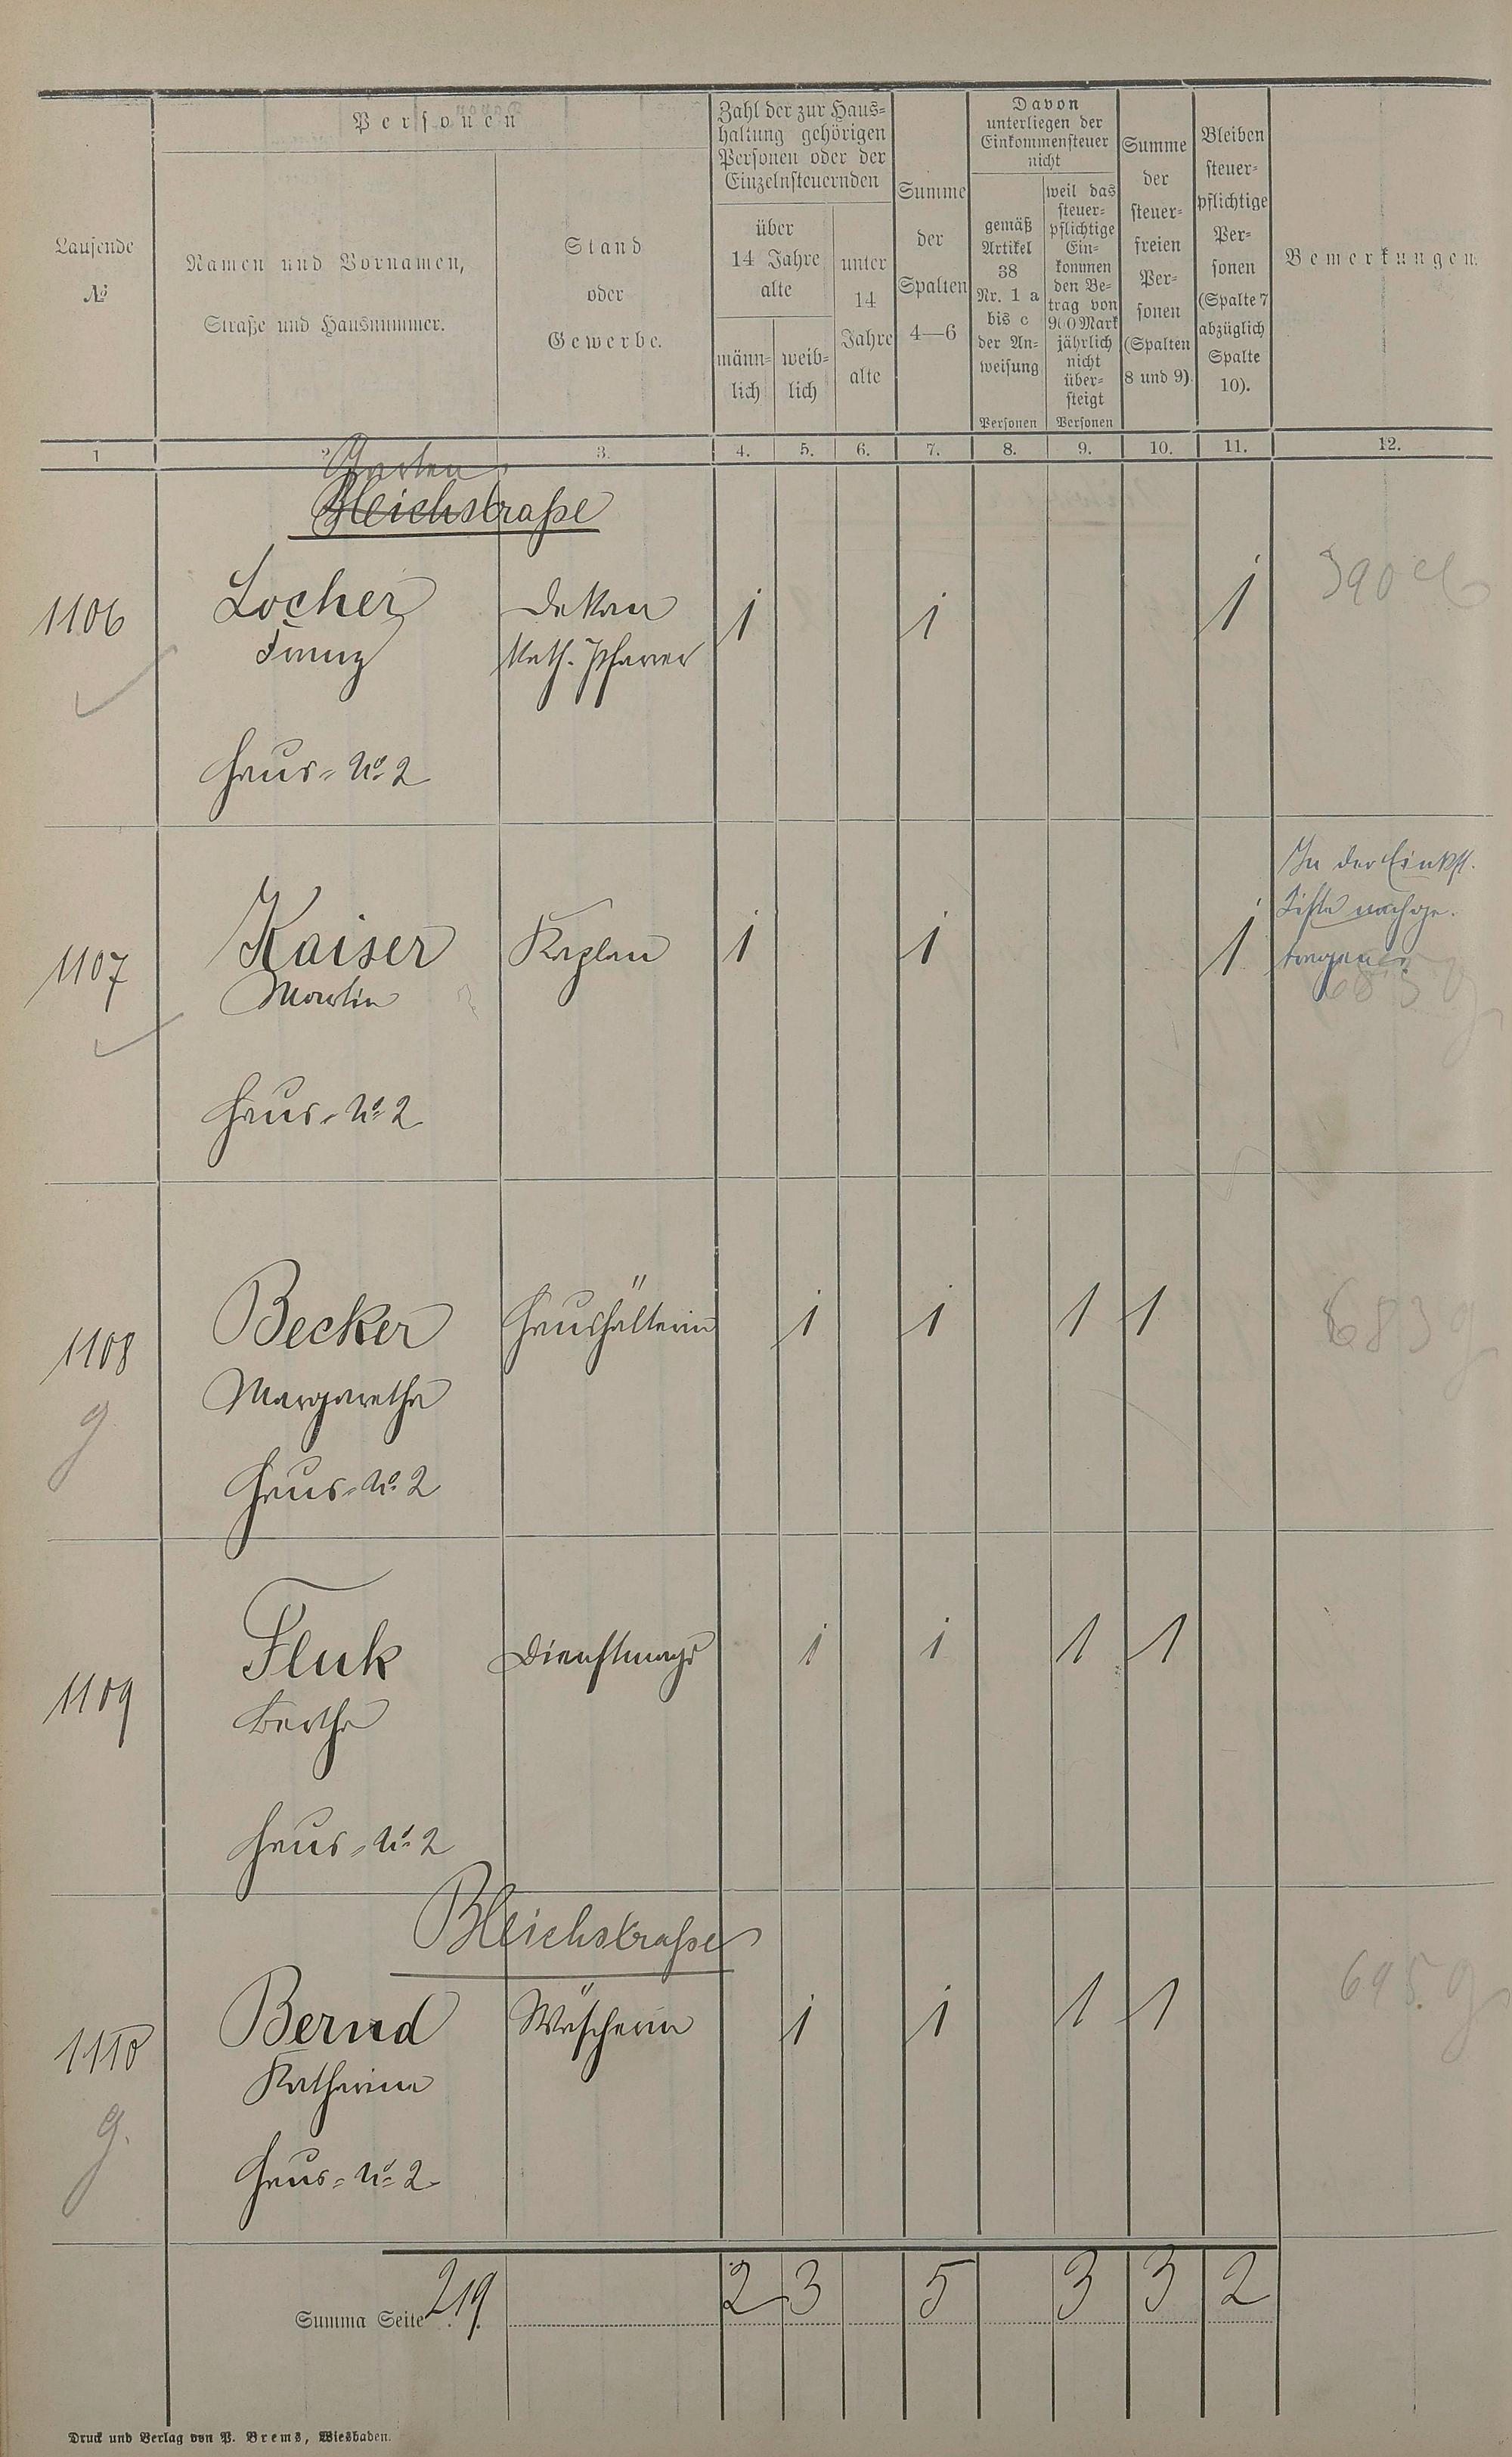 Personen
Zahl der zur Haus-
haltung gehörigen
Personen oder der
Einzelnsteuernden
Davon
unterliegen der
Einkommensteuer
nicht
Laufende
№
Namen und Vornamen,
Straße und Hausnummer.
Stand
oder
Gewerbe.
über
14 Jahre
alte
männ-
lich
weib-
lich
unter
14
Jahre
alte
Summe
der
Spalten
4—6
gemäß
Artikel
38
Nr. 1 a
bis c
der An-
weisung
Personen
weil das
steuer-
pflichtige
Ein-
kommen
den Be-
trag von
900 Mark
jährlich
nicht
über-
steigt
Personen
Summe
der
steuer-
freien
Per-
sonen
(Spalten
8 und 9).
Bleiben
steuer-
pflichtige
Per-
sonen
(Spalte 7
abzüglich
Spalte
10).
Bemerkungen.
1 2 3. 4. 5. 6. 7. 8. 9. 10. 11. 12.
Garten
Bleichstraße
1106 Locher Dekan 1 1 1 390
Franz Kath. Pfarrer
Haus-№ 2
1107 Kaiser Kaplan 1 1 1 In der Einkst.
Liste nachge-
tragen
Martin
Haus-№ 2
1108 Becker Haushälterin 1 1 1 1 683 g
g Margaretha
Haus-№ 2
1109 Fluk Dienstmagd 1 1 1 1
Bertha
Haus-№ 2
Bleichstraße
1110 Bernd Wäscherin 1 1 1 1 695. g
g. Katharina
Haus-№ 2
Summa Seite 219. 2 3 5 3 3 2
Druck und Verlag von P. Brems, Wiesbaden.